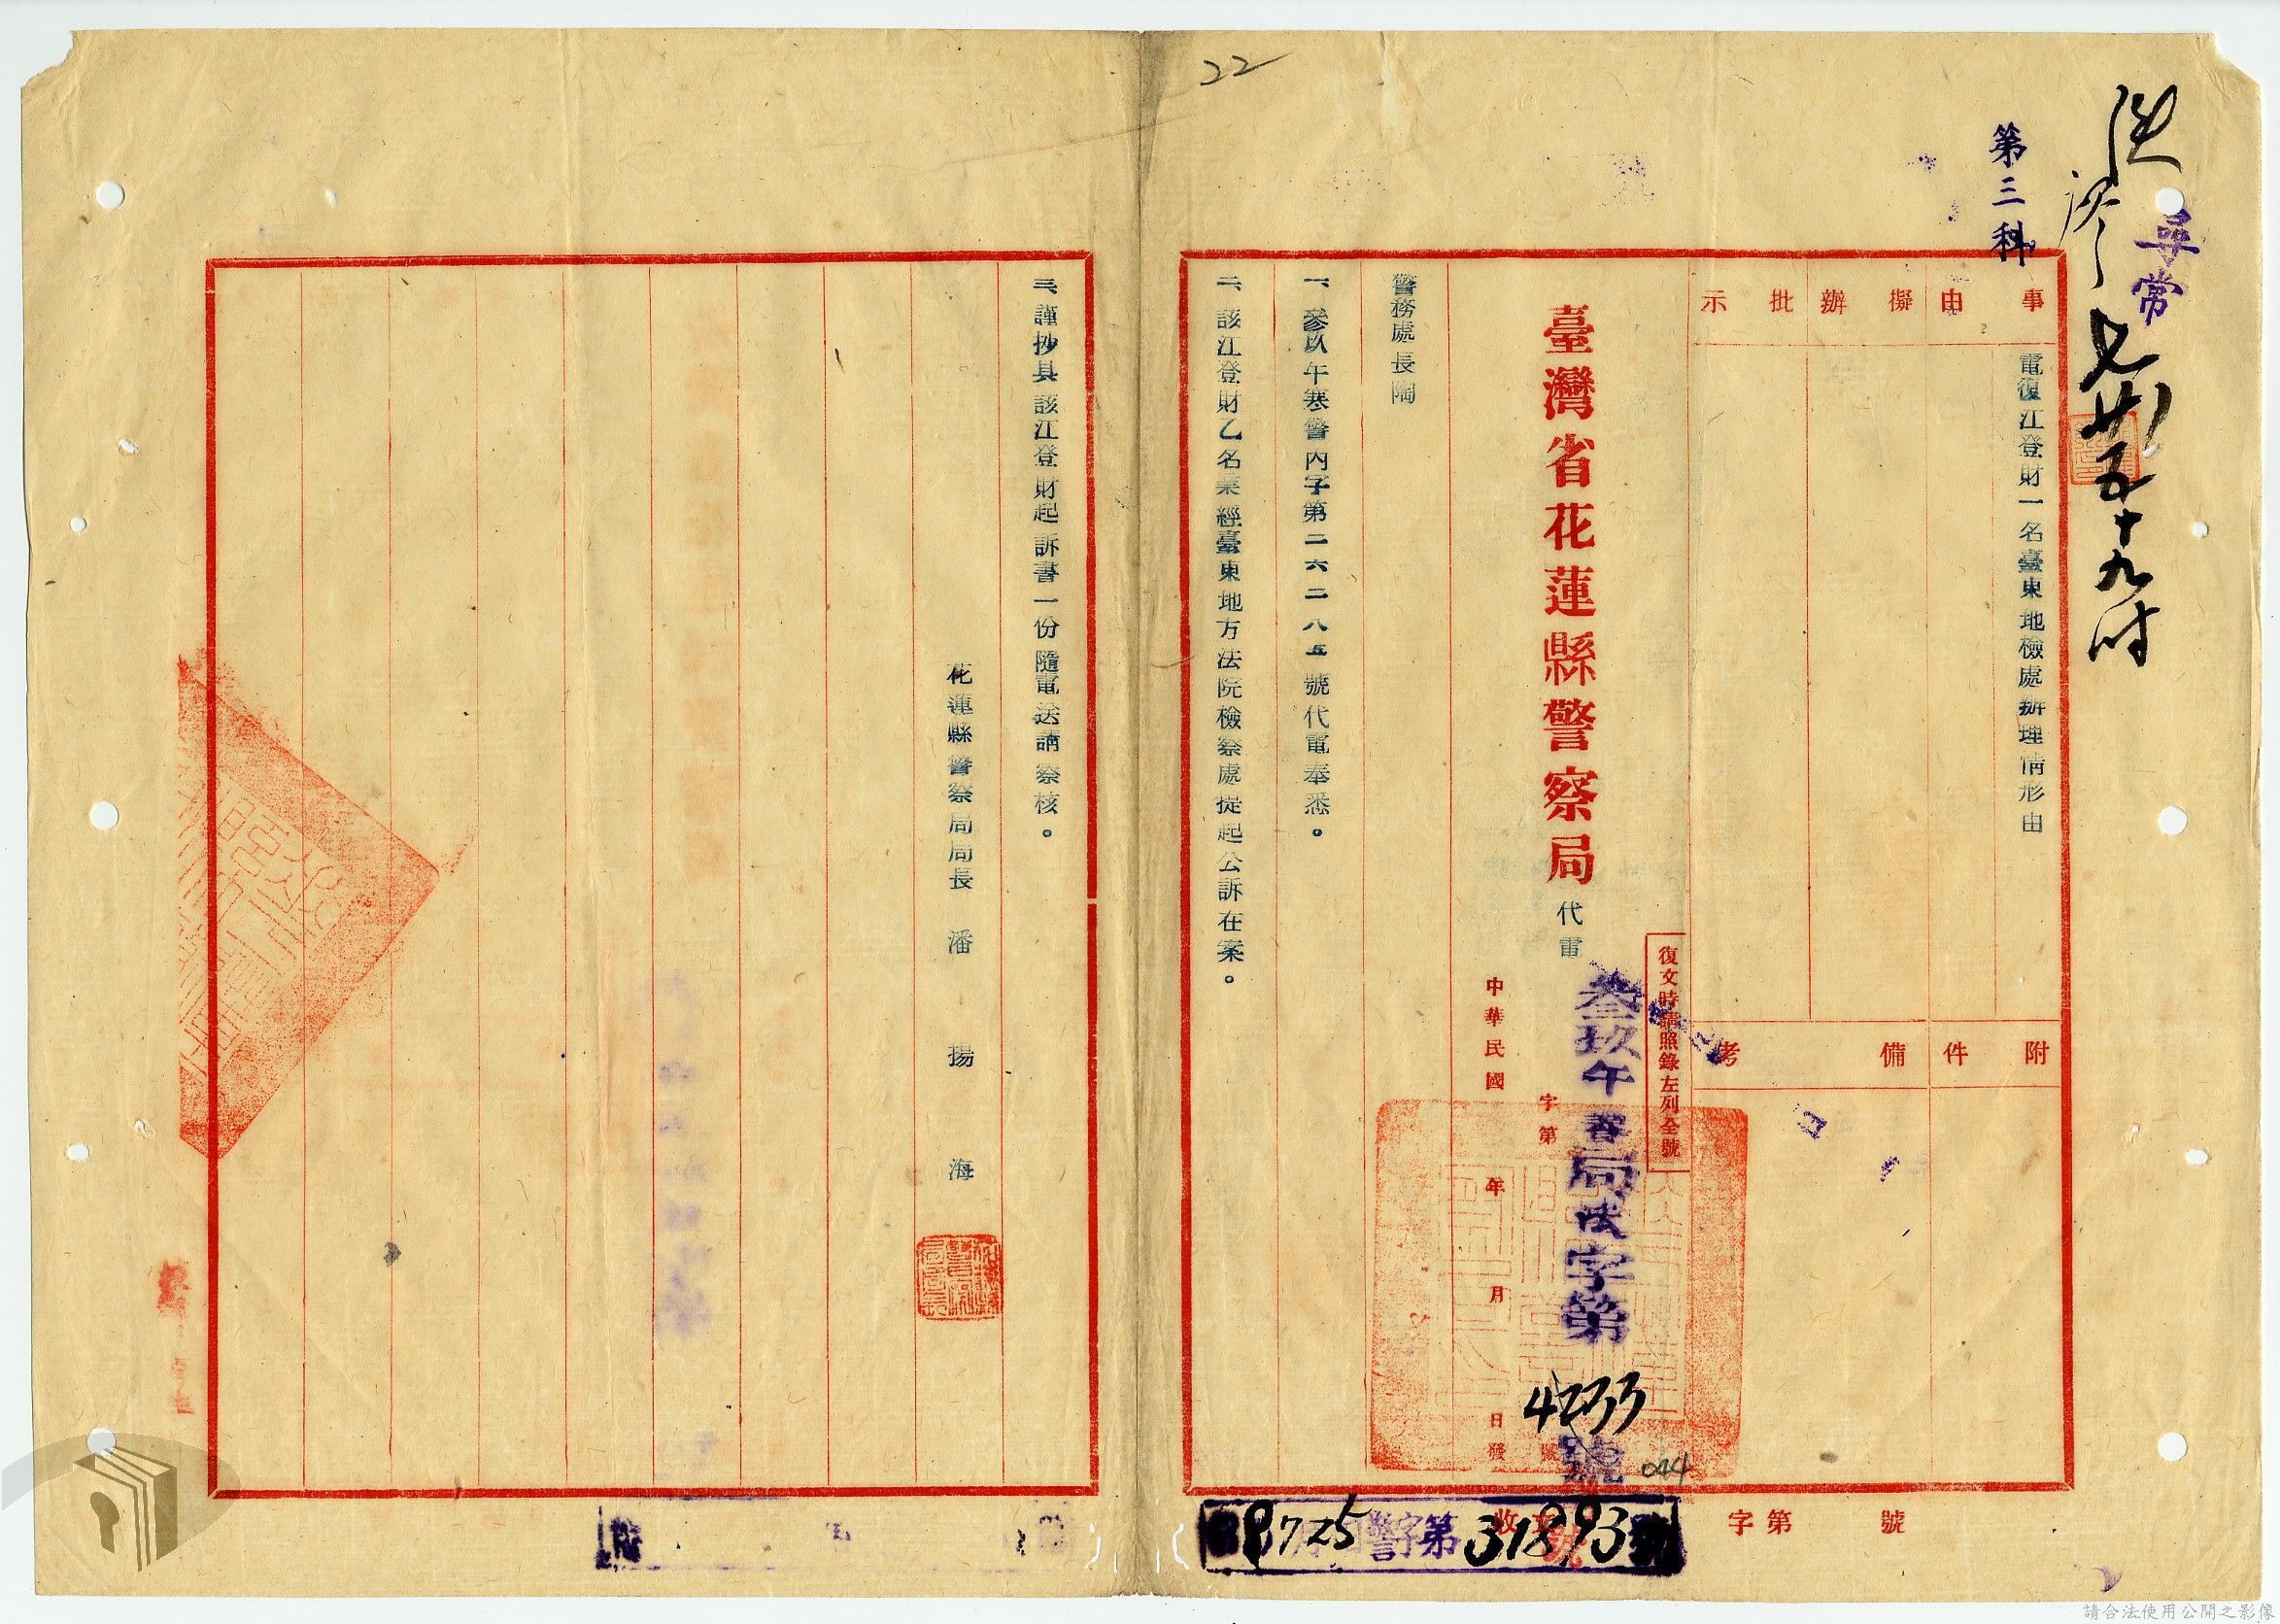 22
尋常
第三科
七廿五十九时
事由
擬辦
批示
電復江登財一名臺東地檢處辦理情形由
附件
備考
字第 號
復文時請照錄左列全號
臺灣省花蓮縣警察局代電
叁玖午 局法字第4233號
字第 號
中華民國 年 月 日發
044
警務處長陶
一、參玖午寒警內字第二六二八五號代電奉悉。
二、該江登財乙名業經臺東地方法院檢察處提起公訴在案。
三、謹抄具該江登財起訴書一份隨電送請察核。
花蓮縣警察局局長 潘 揚 海
725 警字第31893號
收文
請合法使用公開之影像